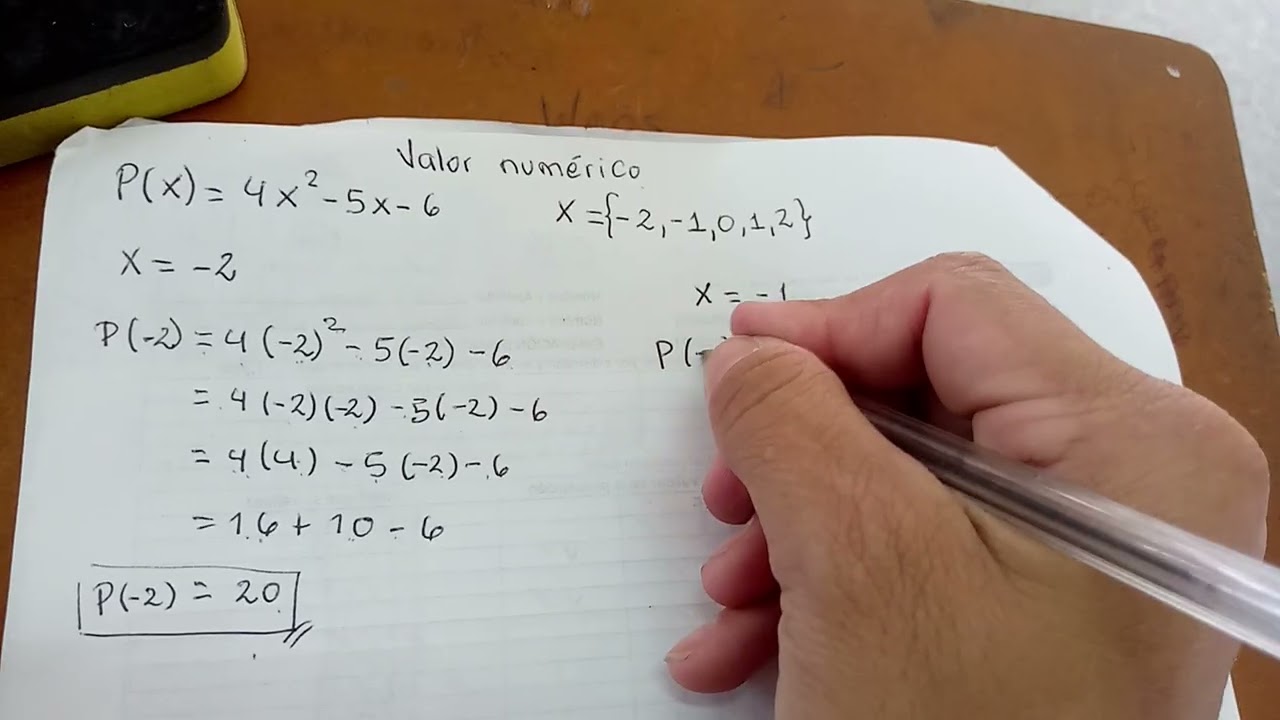 Valor numérico
P(x) = 4x² - 5x - 6
x = {-2, -1, 0, 1, 2}
x = -2
P(-2) = 4(-2)² - 5(-2) - 6
= 4(-2)(-2) - 5(-2) - 6
= 4(4) - 5(-2) - 6
= 16 + 10 - 6
P(-2) = 20
x = -1
P(-